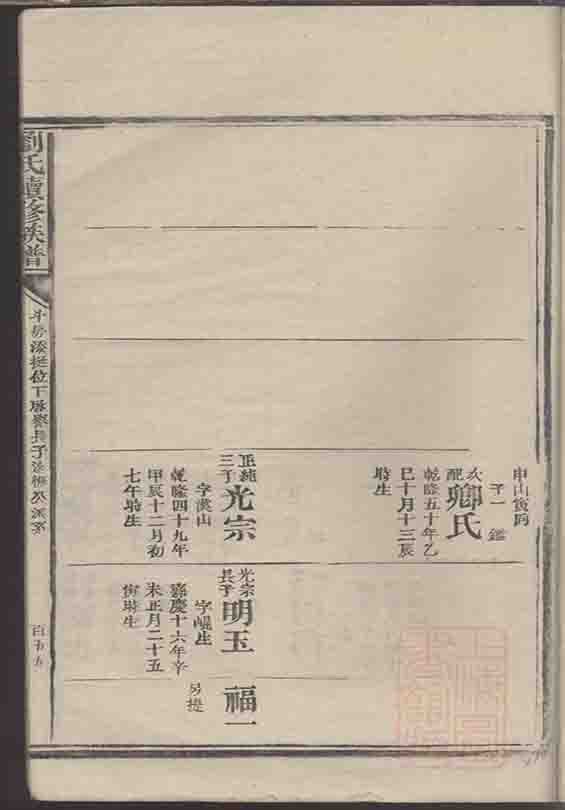 申山向
子一 鑑
次配 卿氏
乾隆五十年乙
巳十月十三辰
時生
正純三子 光宗
字漢山
乾隆四十九年
甲辰十二月初
七午時生
光宗長子 明玉
字崐生
嘉慶十六年辛
未正月二十五
寅時生
福一
另提
劉氏續修族譜
位下
長子
百五五